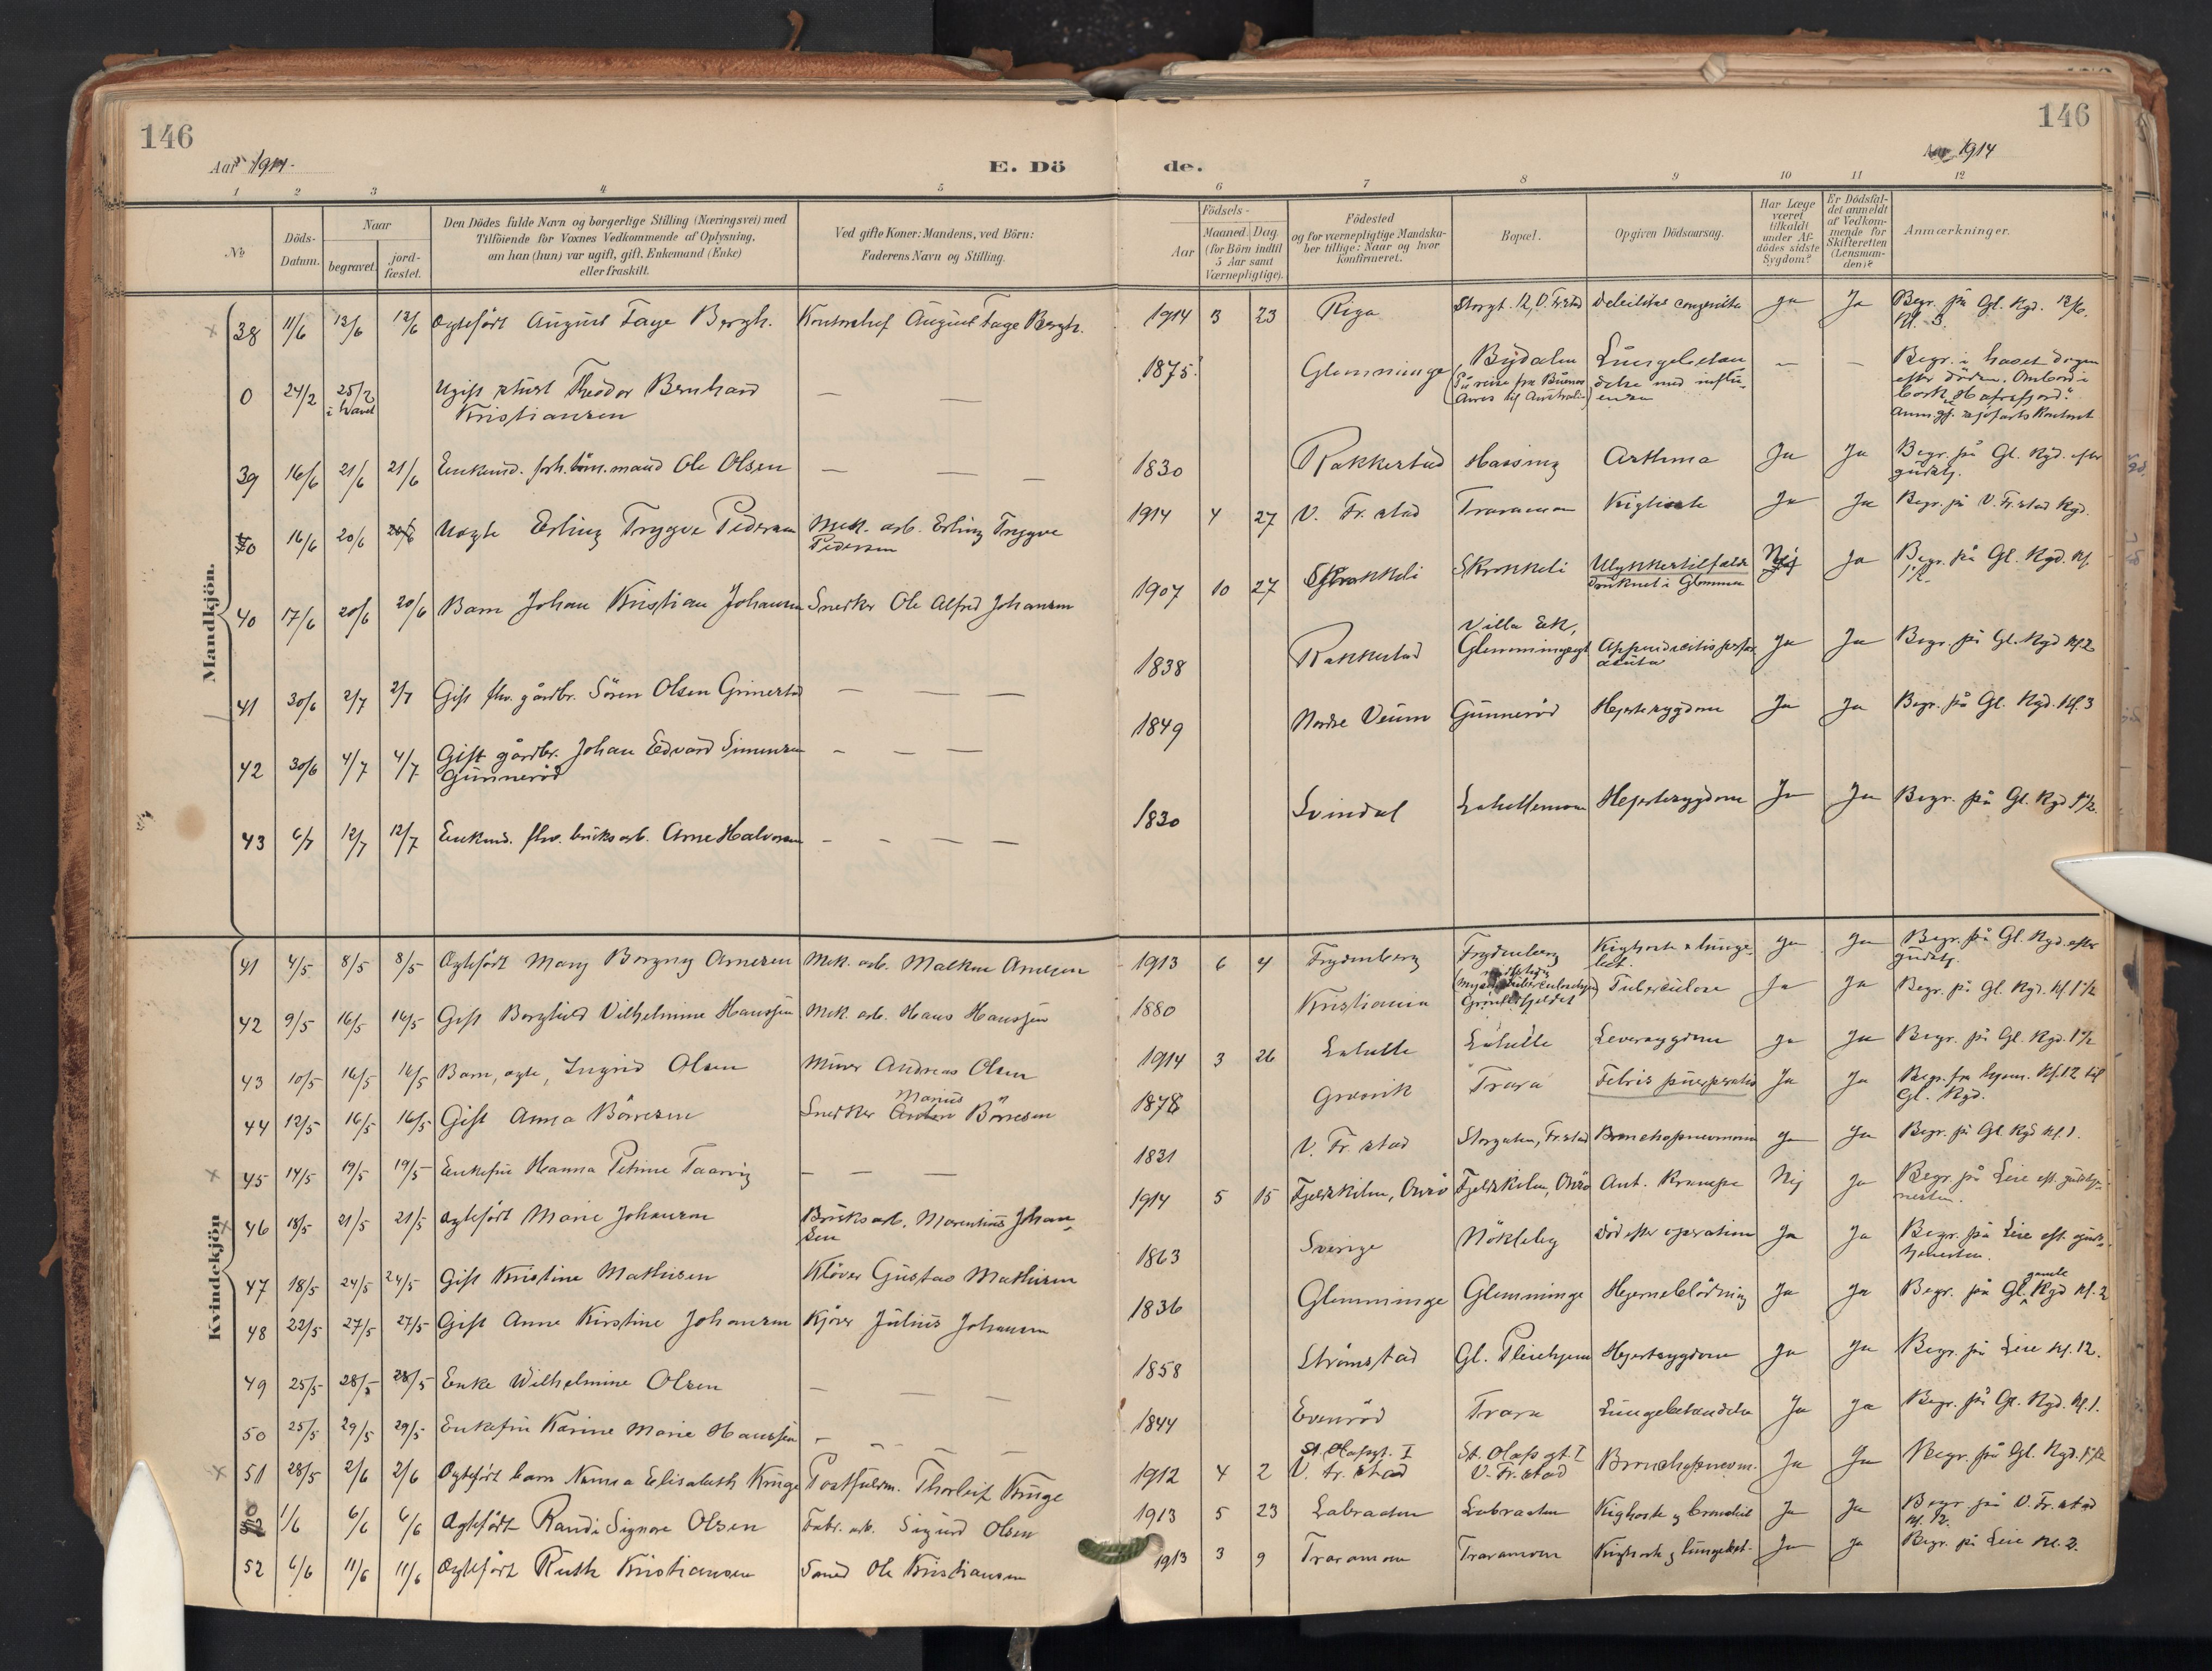 146
Aar 1914.
E. Dö
de.
Aar 1914
146
1 2 3 4 5 6 7 8 9 10 11 12
No
Döds-
Datum.
Naar
begravet.
jord-
fæstet.
Den Dödes fulde Navn og borgerlige Stilling (Næringsvei) med
Tilföiende for Voxnes Vedkommende af Oplysning,
om han (hun) var ugift, gift, Enkemand (Enke)
eller fraskilt.
Ved gifte Koner: Mandens, ved Börn:
Faderens Navn og Stilling.
Födsels-
Aar
Maaned. Dag.
(for Börn indtil
5 Aar samt
Værnepligtige).
Födested
og for værnepligtige Mandska-
ber tillige: Naar og hvor
konfirmeret.
Bopæl.
Opgiven Dödsaarsag.
Har Læge
været
tilkaldt
under Af-
dödes sidste
Sygdom?
Er Dödsfal-
det anmeldt
af Vedkom-
mende for
Skifteretten
(Lensman-
den)?
Anmærkninger.
Mandkjön.
38 11/6 12/6 12/6 Ægtefødt August Faye Bergh. Kontorchef August Faye Bergh. 1914 3 23 Riga Storgt. 12, V. Fr.stad debilitas congenita Ja Ja Begr. på Gl. Kgd. 12/6.
Kl. 3.
0 24/2 25/2 i havet Ugift stuert Theodor Bernhard
Kristiansen — — 1875. Glemminge Bydalen
(På reise fra Buenos
Aires til Australia) Lungebetæn
delse med influ-
enza — — Begr. i havet dagen
efter döden. Ombord i
bark "Hafrsfjord".
39 16/6 21/6 21/6 Enkemd. forh. töm. mand Ole Olsen — — — 1830 Rakkestad Hassing Asthma Ja Ja Begr. på Gl. Kgd. efter
gudstj.
0 16/6 20/6 20/6 Uægte Erling Trygve Pedersen Mek. arb. Erling Trygve
Pedersen 1914 4 27 V. Fr.stad Traramoen Kighoste Ja Ja Begr. på V. Fr.stad Kgd.
40 17/6 20/6 20/6 Barn Johan Kristian Johansen Snedker Ole Alfred Johansen 1907 10 27 Skrokkeli Skrokkeli Ulykkestilfælde
druknet i Glommen Nej Ja Begr. på Gl. Kgd. Kl.
1 1/2.
41 30/6 2/7 2/7 Gift fhv. gårdbr. Sören Olsen Grimestad — — — 1838 Rakkestad Villa Eek,
Glemmingegt Appendicitis perfor.
acuta Ja Ja Begr. på Gl. Kgd Kl 2
42 30/6 4/7 4/7 Gift gårdbr. Johan Edvard Simensen
Gunneröd — — — 1849 Nordre Veum Gunneröd Hjertesygdom Ja Ja Begr. på Gl. Kgd. Kl. 3
43 6/7 12/7 12/7 Enkemd. fhv. bruksarb. Arne Halvorsen — — — — 1830 Svindal Lahellemoen Hjertesygdom Ja Ja Begr. på Gl. Kgd 1 1/2.
Kvindekjön
41 4/5 8/5 8/5 Ægtefödt Mary Borgny Arnesen Mek. arb. Malkus Arnesen 1913 6 4 Frydenberg Frydenberg Kighoste & lunge-
bet. Ja Ja Begr. på Gl. Kgd. efter
gudstj.
42 9/5 16/5 16/5 Gift Borghild Vilhelmine Haussen Mek. arb. Hans Haussen 1880 Kristiania Tuberculose Ja Ja Begr. på Gl. Kgd. Kl 1 1/2
43 10/5 16/5 16/5 Barn, ægte, Ingrid Olsen Murer Andreas Olsen 1914 3 26 Lahelle Lahelle Leversygdom Ja Ja Begr. på Gl. Kgd. 1 1/2
44 12/5 16/5 16/5 Gift Anna Börresen Snedker Marius Börresen 1878 Greåk Trara Febris puerperalis Ja Ja Begr. fra hjem. Kl. 12 til
Gl. Kgd.
45 14/5 19/5 19/5 Enkefru Hanna Petrine Taarvig — — — 1831 V. Fr.stad Storgaten, Fr.stad Bronchopneumoni Ja Ja Begr. på Gl. Kgd Kl. 1.
46 18/5 21/5 21/5 Ægtefödt Marie Johansen Bruksarb. Marentius Johan-
sen 1914 5 15 Fjeldskilen, Onsö Fjeldskilen, Onsö Ant. Krampe Nej Ja Begr. på Leie eft. gudstje-
nesten.
47 18/5 24/5 24/5 Gift Kristine Mathisen Klöver Gustav Mathisen 1863 Sverige Nökleby Död efter operation Ja Ja Begr. på Leie eft. guds-
tjenesten.
48 22/5 27/5 27/5 Gift Anne Kirstine Johansen Kjörer Julius Johansen 1836 Glemminge Glemminge Hjerneblödning Ja Ja Begr. på Gl. gamle Kgd Kl. 2
49 25/5 28/5 28/5 Enke Wilhelmine Olsen — — — 1858 Strömstad Gl. Pleiehjem Hjertesygdom Ja Ja Begr. på Leie Kl. 12.
50 25/5 29/5 29/5 Enkefru Karine Marie Haussen — — — 1844 Evenröd Trara Lungebetændelse Ja Ja Begr. på Gl. Kgd. Kl. 1.
51 28/5 2/6 2/6 Ægtefödt barn Nanna Elisabeth Kruge Postfuldm. Thorleif Kruge 1912 4 2 St. Olafsgt. I
V. Fr.stad St. Olafsgt. I
V. Fr.stad Bronchopneum. Ja Ja Begr. på Gl. Kgd. 1 1/2
0 1/6 6/6 6/6 Ægtefödt Randi Signore Olsen Fabr. arb. Sigurd Olsen 1913 5 23 Labraaten Labraaten Kighoste & bronchit Ja Ja Begr. på V. Fr.stad
Kl. 12.
52 6/6 11/6 11/6 Ægtefödt Ruth Kristiansen Smed Ole Kristiansen 1913 3 9 Traramoen Traramoen Kighoste & lungebet. Ja Ja Begr. på Leie Kl. 2.